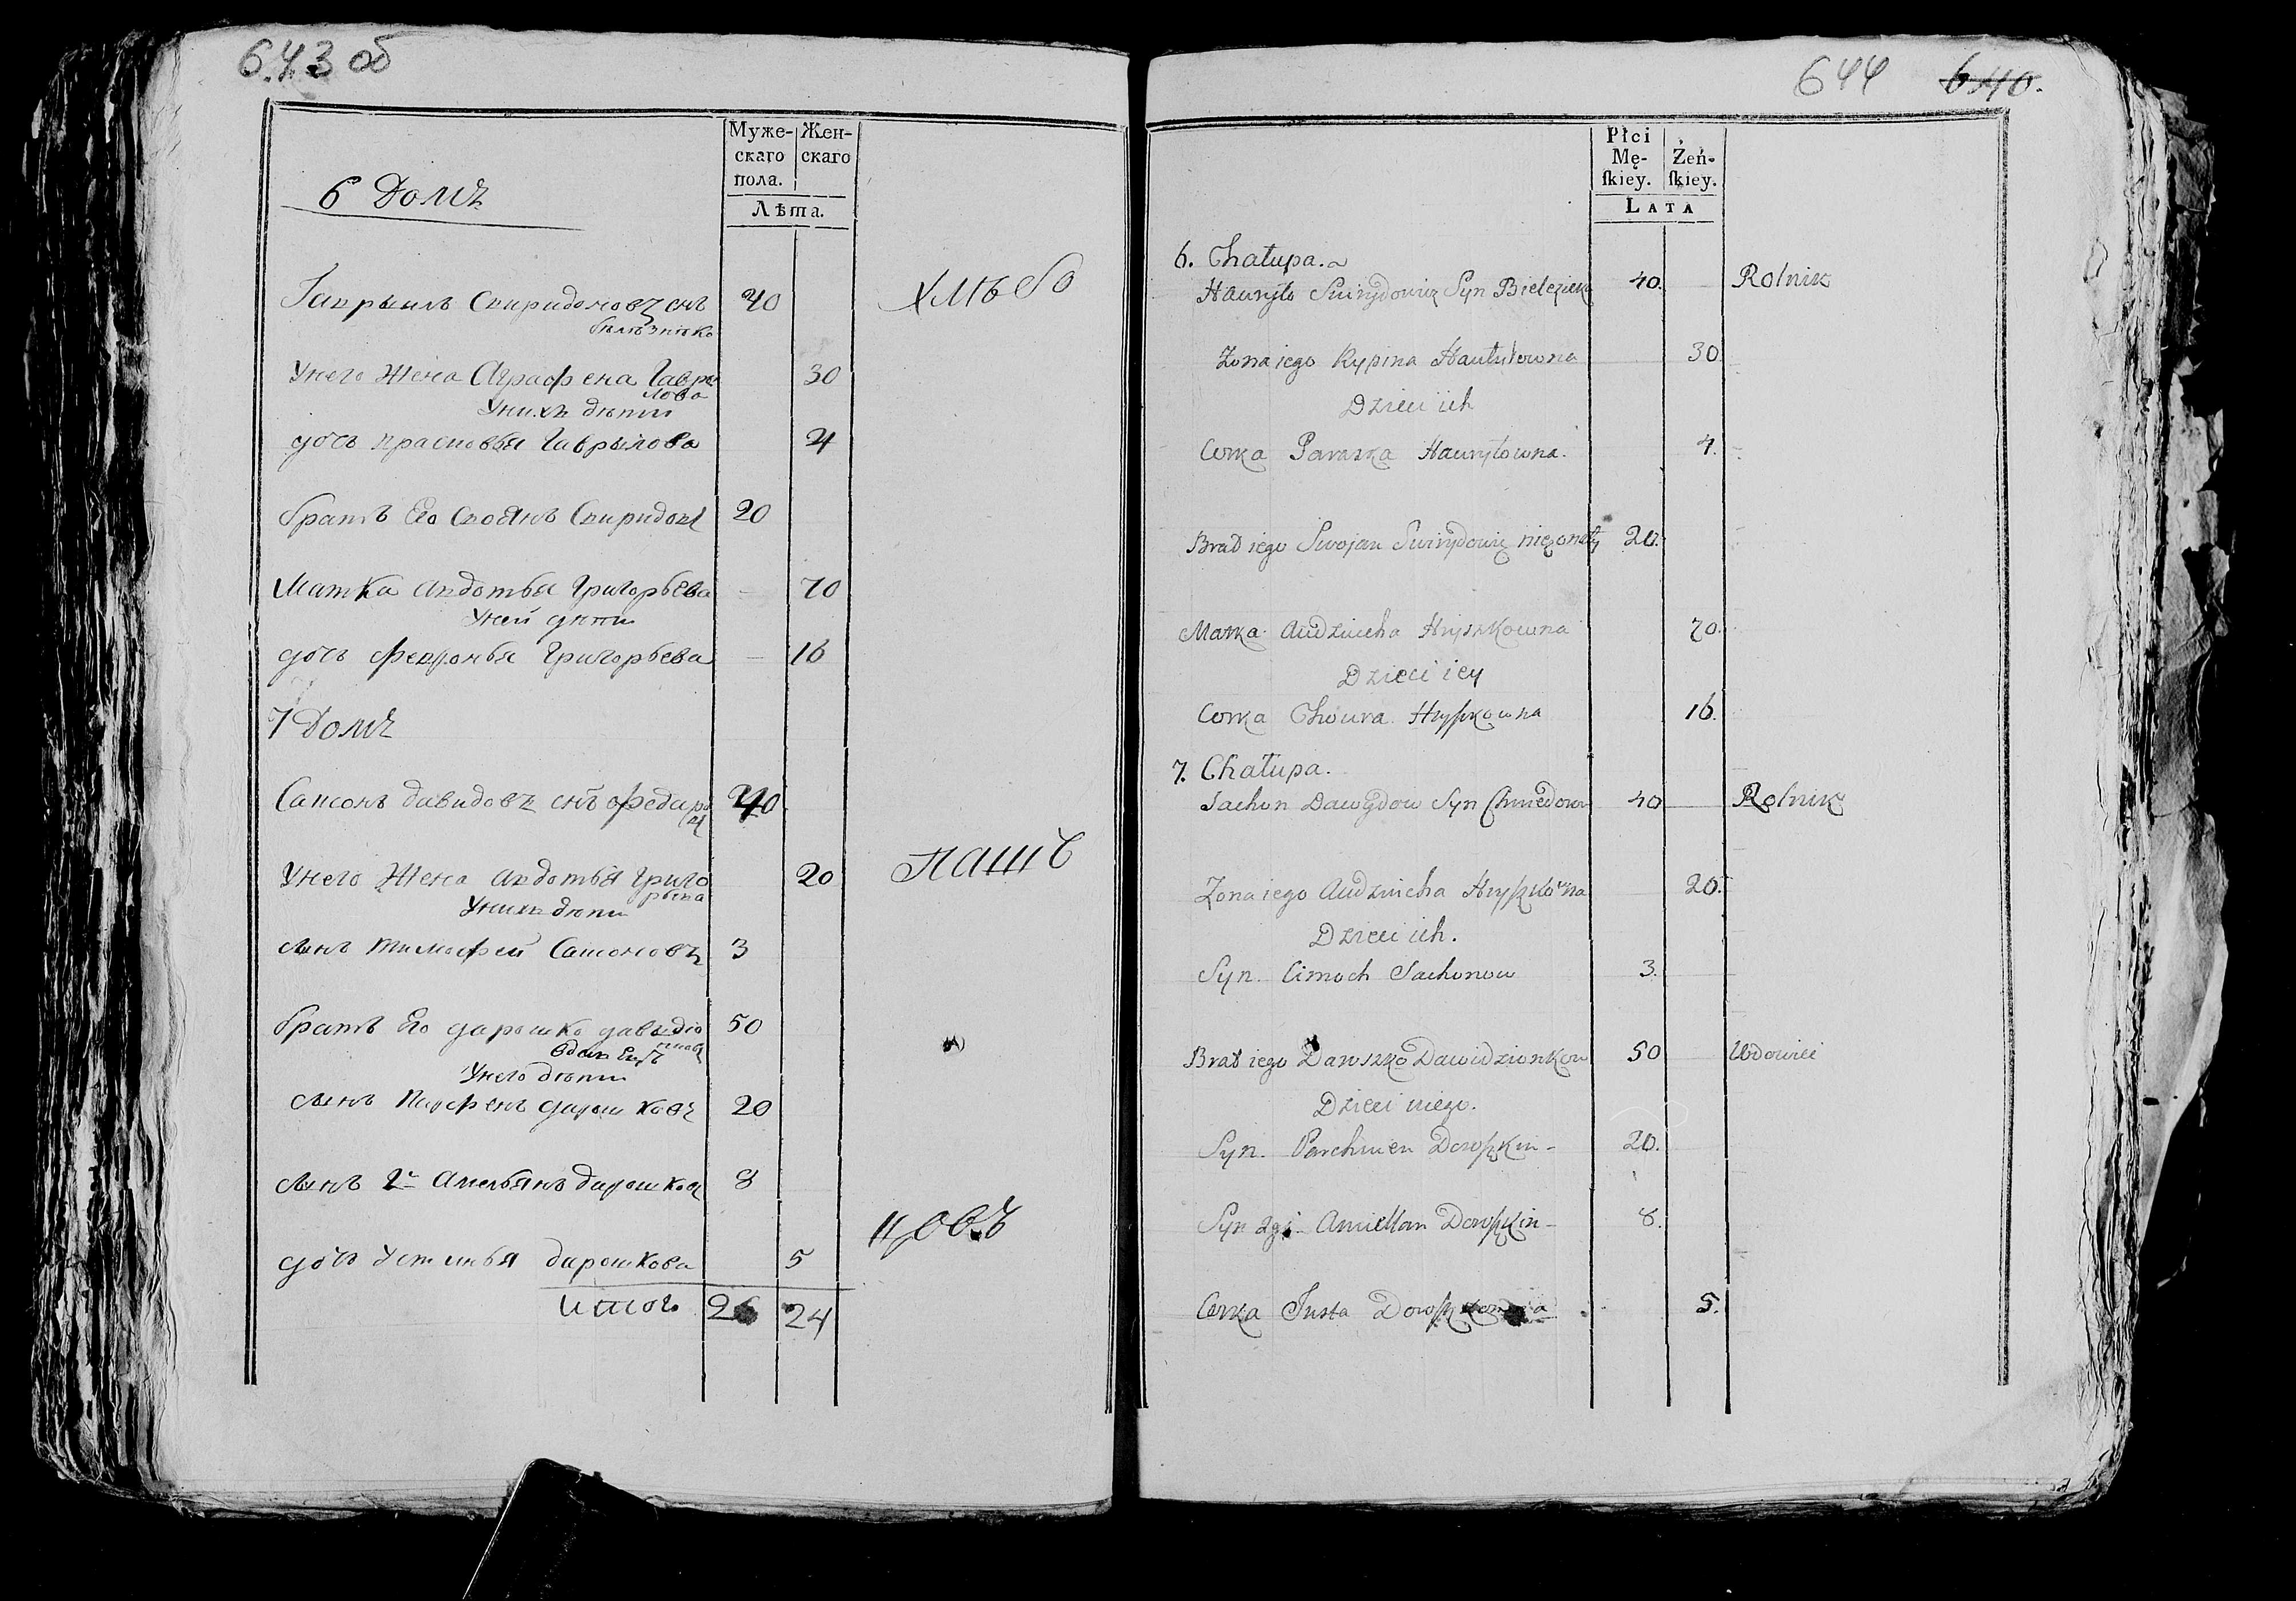 643 об
Муже- Жен-
скаго скаго
пола.
Лѣта.
6 Домъ
Гаврыилъ Свиридоновъ снъ 40 хлѣбо
Унего Жена Аграфена Гаври 30
лова
Унихъ дѣти
дочь прасковья Гаврылова 4
братъ Его Своянъ Свиридов 20
Матка авдотья Григорьева 70
Уней дѣти
дочь февронья Григорьева 16
7 Домъ
Сапсонъ давидовъ снъ 40
Унего Жена авдотья Григо 20 пашъ
рьева
Унихъ дѣти
сынъ тимофей Сапсоновъ 3
братъ Его дарошко давыдю 50
Унего дѣти
сынъ Парфенъ дарошковъ 20
сынъ 2й Амельянъ дарошков 8
цовъ
дочь Устинья дарошкова 5
итого 26 24
644 640.
Płci
Mę- Żeń-
ſkiey. ſkiey.
LATA
6. Chałupa.
Hauryło Swirydowicz Syn 40. Rolnik
Zona iego Rypina 30
Dzieci ich
Corka Paraska Hauryłowna. 4.
Brat iego Swojan Swirydowicz nieżonaty 20.
Matka Audziucha Hryszkowna 70.
Dzieci iey
Corka Chowra Hryſzkowna 16.
7. Chałupa.
Sachon Dawydow Syn 40 Rolnik
Zona iego Audziucha Hryſzkowna 20.
Dzieci ich.
Syn Cimoch Sachonow 3.
Brat iego Daroszko Dawidzionkow 50 Wdowiec
Dzieci niego.
Syn Parchwien Doroſzkin 20.
Syn 2gi Amiellan Doroſzkin 8.
Corka Justa 5.